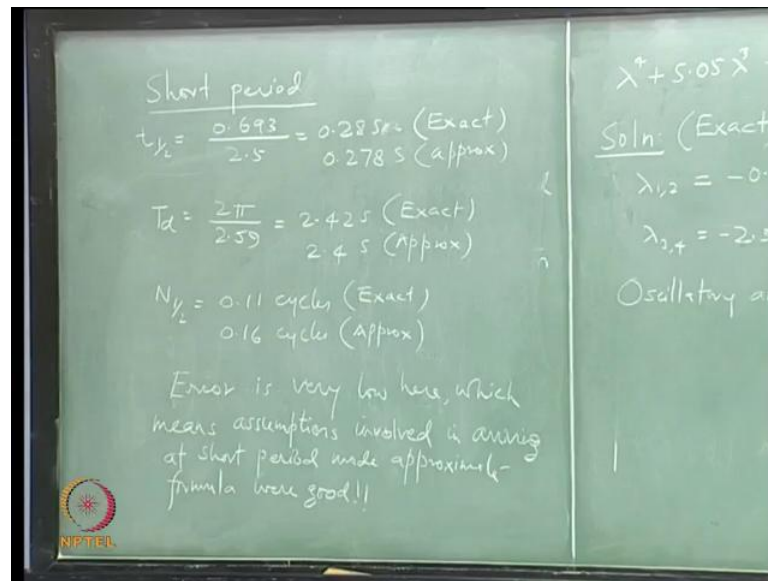 Short period
t½ = 0.693 / 2.5 = 0.28 Sec (Exact)
0.278 S (approx)
Td = 2π / 2.59 = 2.42 S (Exact)
2.4 S (Approx)
N½ = 0.11 cycles (Exact)
0.16 cycles (Approx)
Error is very low here, which
means assumptions involved in arriving
at short period mode approximate
formula were good!!
λ⁴ + 5.05 λ³
Soln: (Exact
λ1,2 = -0.
λ3,4 = -2.5
Oscillatory a
NPTEL